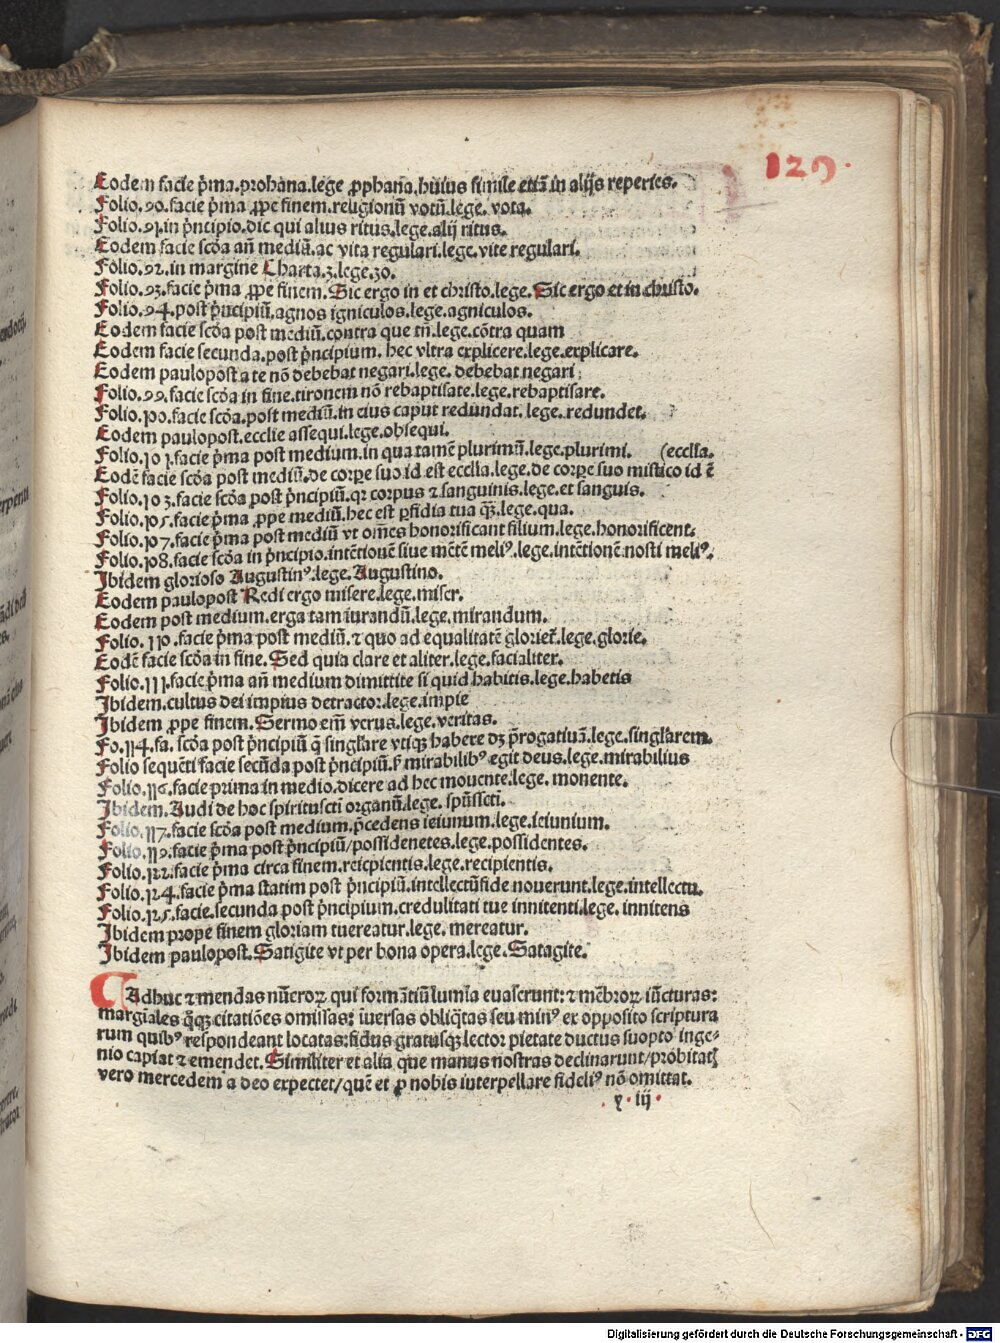 129.
Eodem facie p̄ma.prohana.lege ꝓphana.huius simile etiā in alijs reperies.
Folio.90.facie p̄ma ꝓpe finem.religionū votū.lege. vota.
Folio.91.in p̄ncipio.dic qui alius ritus.lege.alij ritus.
Eodem facie scďa añ mediū.ac vita regulari.lege.vite regulari.
Folio.92.in margine Charta.3.lege.30.
Folio.93.facie p̄ma ꝓpe finem.Sic ergo in et christo.lege.Sic ergo et in christo.
Folio.94.post p̄ncipiū.agnos igniculos.lege.agniculos.
Eodem facie scďa post mediū.contra que tñ.lege.cōtra quam
Eodem facie secunda.post p̄ncipium. hec vltra explicere.lege.explicare.
Eodem paulopost a te nō debebat negari.lege. debebat negari
Folio.99.facie scďa in fine.tironem nō rebaptisate.lege.rebaptisare.
Folio.100.facie scďa.post mediū.in eius caput redundat. lege.redundet.
Eodem paulopost.ecclie assequi.lege.obsequi.
Folio.101.facie p̄ma post medium.in qua tamē plurimū.lege.plurimi. (ecclīa.
Eodē facie scďa post mediū.de corꝑe suo id est ecclīa.lege.de corꝑe suo mistico id ē
Folio.103.facie scďa post p̄ncipiū.qꝛ corpus ⁊ sanguinis.lege.et sanguis.
Folio.105.facie p̄ma ꝓpe mediū.hec est ꝑfidia tua qꝫ.lege.qua.
Folio.107.facie p̄ma post mediū vt om̄es honorificant filium.lege.honorificent.
Folio.108.facie scďa in p̄ncipio.intētionē siue mētē meliꝰ.lege.intētionē nosti meliꝰ.
Ibidem glorioso Augustinꝰ.lege.Augustino.
Eodem paulopost Redi ergo misere.lege.miser.
Eodem post medium.erga tam iurandū.lege.mirandum.
Folio.110.facie p̄ma post mediū.⁊ quo ad equalitatē gloriet̄.lege.glorie.
Eodē facie scďa in fine.Sed quia clare et aliter.lege.facialiter.
Folio.111.facie p̄ma añ medium dimittite si quid habitis.lege.habetis
Ibidem.cultus dei impius detractor.lege.impie
Ibidem ꝓpe finem.Sermo em̄ verus.lege.veritas.
Fo.114.fa. scďa post p̄ncipiū q̄ singl̄are vtiqꝫ habere dꝫ p̄rogatiuā.lege.singl̄arem.
Folio sequēti facie secūda post p̄ncipiū.ẜ mirabilibꝰ egit deus.lege.mirabilius
Folio.116.facie prima in medio.dicere ad hec mouente.lege. monente.
Ibidem.Audi de hoc spiritusc̄ti organū.lege. spūssc̄ti.
Folio.117.facie scďa post medium.p̄cedens ieiunum.lege.ieiunium.
Folio.119.facie p̄ma post p̄ncipiū/possidenetes.lege.possidentes.
Folio.122.facie p̄ma circa finem.reicpientis.lege.recipientis.
Folio.124.facie p̄ma statim post p̄ncipiū.intellectūfide nouerunt.lege.intellectu.
Folio.125.facie.secunda post p̄ncipium.credulitati tue innitenti.lege. innitens
Ibidem prope finem gloriam tuereatur.lege. mereatur.
Ibidem paulopost.Satigite vt per bona opera.lege.Satagite.
Adhuc ⁊ mendas nūeroꝝ qui formātiū lumīa euaserunt: ⁊ mēbroꝝ iūcturas:
margīales q̄qꝫ citatiōes omissas: īuersas obliq̄tas seu minꝰ ex opposito scriptura
rum quibꝰ respondeant locatas: fidus gratusqꝫ lector pietate ductus suopto inge-
nio capiat ⁊ emendet. Similiter et alia que manus nostras declinarunt/probitatꝭ
vero mercedem a deo expectet/quē et ꝓ nobis interpellare fideliꝰ nō omittat.
y.iij.
Digitalisierung gefördert durch die Deutsche Forschungsgemeinschaft - DFG